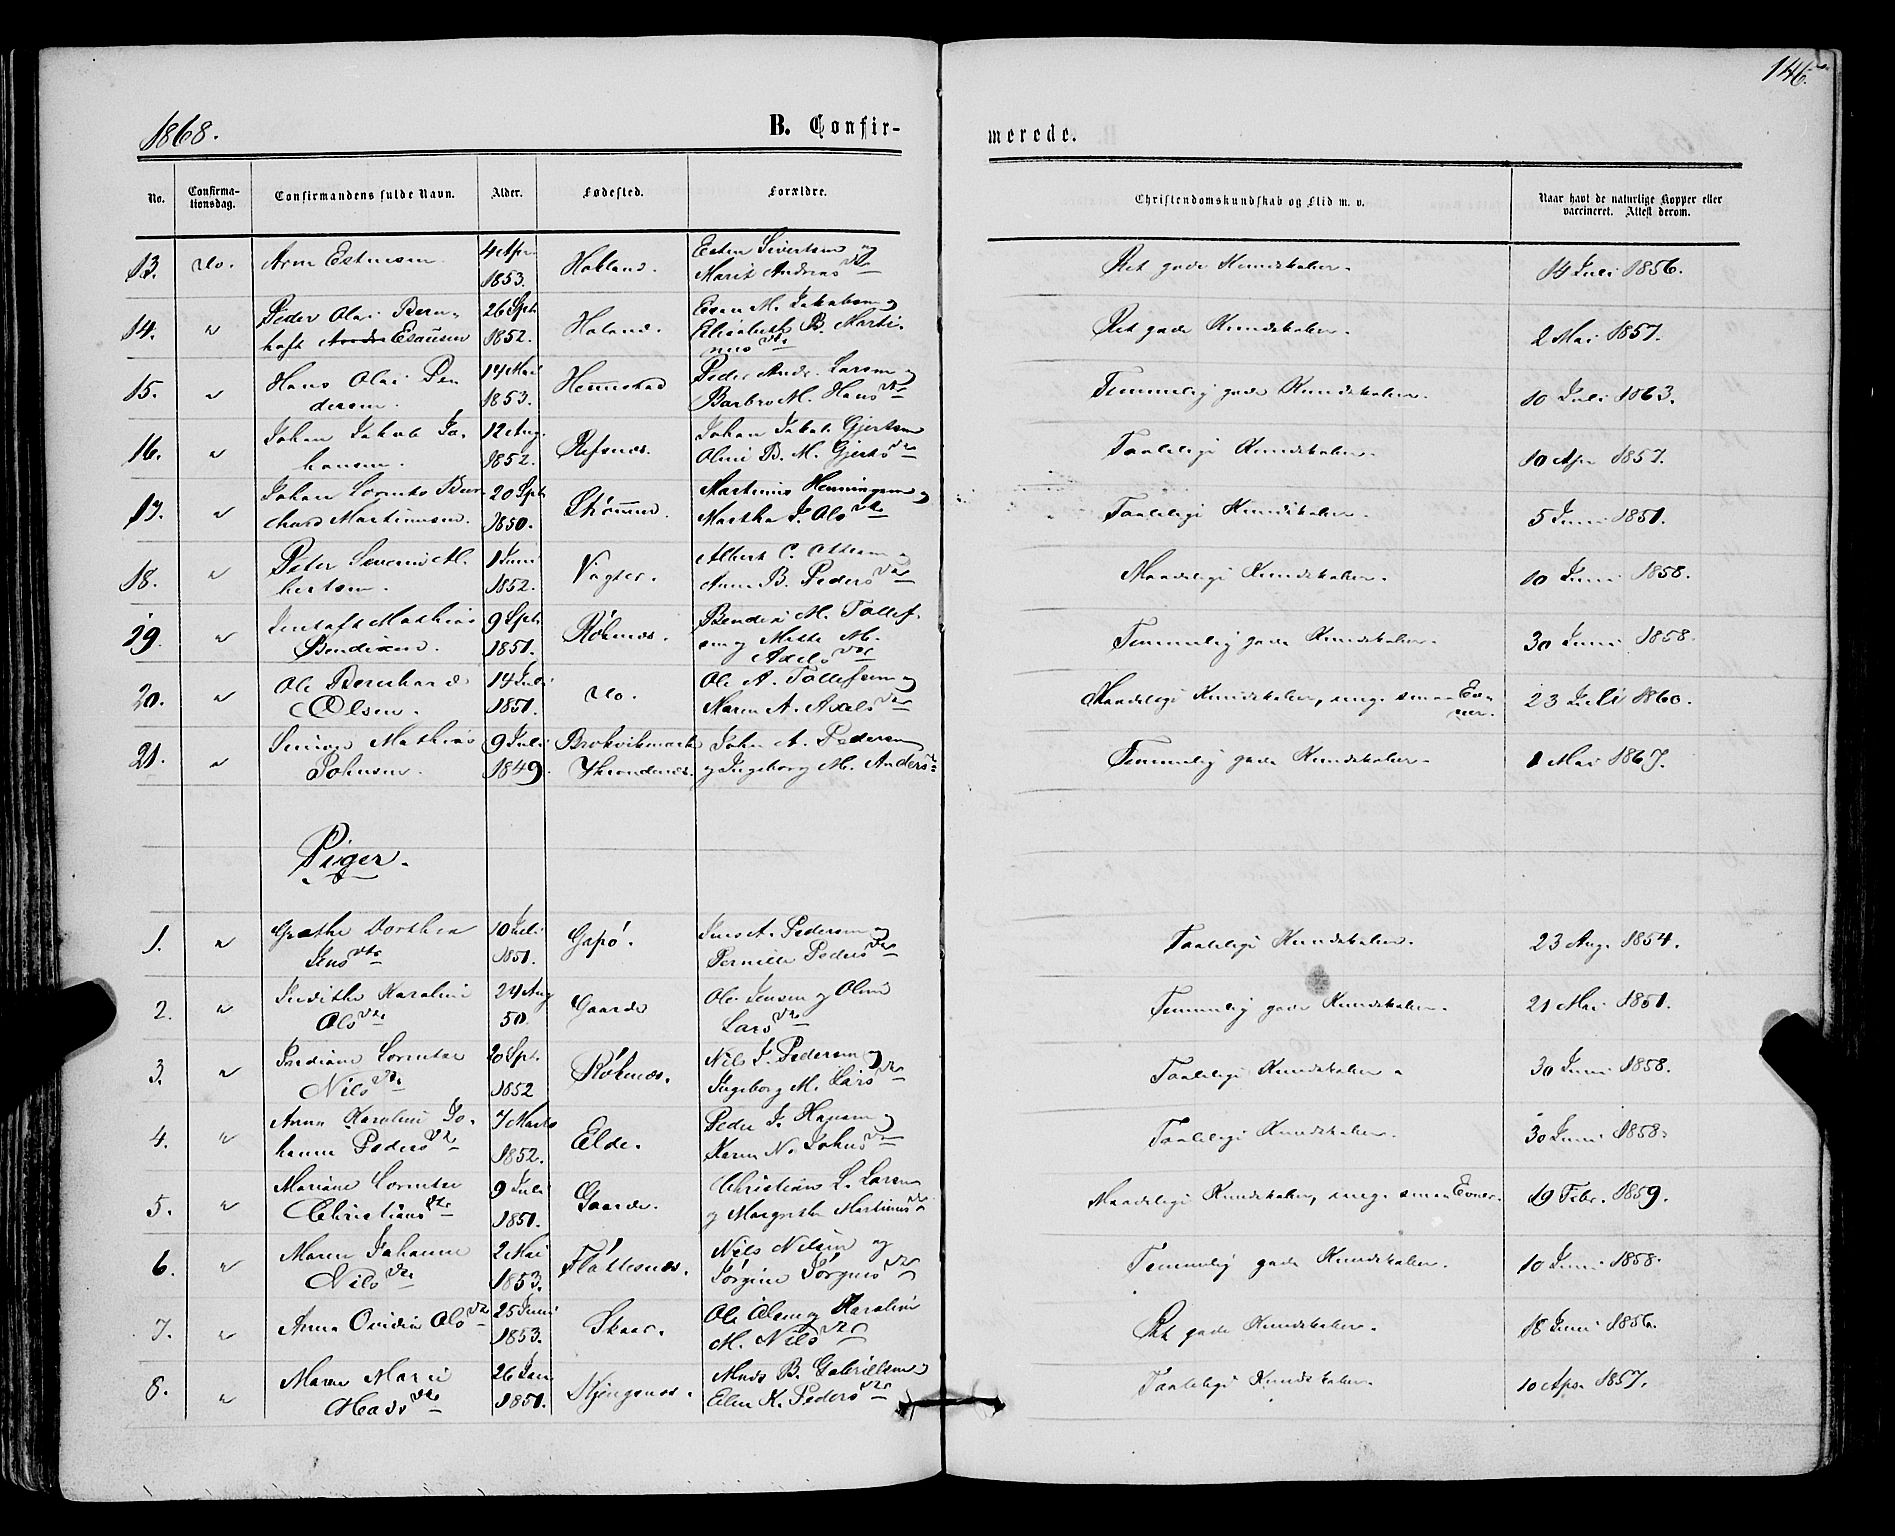 146.
1868.
B. Confir-
merede.
No.
Confirma-
tionsdag.
Confirmandens fulde Navn.
Alder.
Fødested.
Forældre.
Christendomskundskab og Flid m. v.
Naar havt de naturlige Kopper eller
vaccineret. Attest derom.
13. do. Arn Estensen 4 Apr. 1853. Halland. Esten Sivertsen og
Marit Andreas dtr
Ret gode Kundskaber. 14 Juli 1856.
14. " Peder Olai Bern-
hoft Esausen 26 Sept. 1852. Haland. Esau M. Jakobsen og
Elisabeth B. Marti-
nus dtr
Ret gode Kundskaber. 2 Mai 1857.
15. " Hans Olai Pe-
dersen. 14 Mai 1853. Hemmestad Peder Andr. Larsen og
Barbro M. Hans dtr
Temmelig gode Kundskaber. 10 Juli 1863.
16. " Johan Jakob Jo-
hansen. 12 Aug. 1852. Refsnæs. Johan Jakob Gjertsen
Oline B. M. Gjerts dtr
Taalelige Kundskaber. 10 Apr 1857.
17. " Johan Lorents
Martinusen. 20 Sept. 1850. Martinus Henningsen og
Martha J. Ols dtr
Taalelige Kundskaber. 5 Juni 1851.
18. " Peter Severin Al-
bertsen. 1 Juni 1852. Albert C. Ottesen og
Anne B. Peders dtr
Maadelige Kundskaber. 10 Juni 1858.
19. " Gustaf Mathias
Bendixen. 9 Sept. 1851. Røknæs. Bendix M. Tollef-
sen og Mette M.
Axels dtr
Temmelig gode Kundskaber. 30 Juni 1858.
20. " Ole Bernhard
Olsen. 14 Juli 1851. do. Ole A. Tollefsen og
Maren A. Axels dtr
Maadelige Kundskaber, smaa Ev-
ner. 23 Juli 1860.
21. " Simon Mathias
Johnsen. 9 Juli 1849. Brokvikmark
Throndenæs. John A. Pedersen
og Ingeborg M. Anders dtr
Temmelig gode Kundskaber. 1 Mai 1867.
Piger.
1. " Grethe Dorthea
Jens dtr 10 Juli 1851. Gapø. Jens A. Pedersen og
Pernille Peders dtr
Taalelige Kundskaber. 23 Aug. 1854.
2. " Karoline
Ols dtr 24 Aug 50. Gaarde Ole Jensen og Oline
Lars dtr
Temmelig gode Kundskaber. 21 Mai 1851.
3. " Lorentse
Nils dtr 20 Sept. 1852 Røknæs. Nils J. Pedersen og
Ingeborg M. Lars dtr
Taalelige Kundskaber 30 Juni 1858.
4. " Anna Karoline Jo-
hanne Peders dtr 7 Marts 1852. Elde. Peder J. Hansen og
Karen N. Johns dtr
Taalelige Kundskaber. 30 Juni 1858.
5. " Mariane Lorentse
Christians dtr 9 Juli 1851. Gaarde. Christian L. Larsen
og Margrethe Martinus dtr
Maadelige Kundskaber, smaa Evner. 19 Febr. 1859.
6. " Maren Johanne
Nils dtr 2 Mai 1853. Flattesnæs. Nils Nilsen og
Jørgine Jørgens dtr
Temmelig gode Kundskaber. 10 Juni 1858.
7. " Anna Ovidia Ols dtr 25 Juni 1853. Skaar. Ole Olsen og Karoline
M. Nils dtr
Ret gode Kundskaber. 18 Juni 1856.
8. " Maren Marie
Mads dtr 26 Jan 1851. Kjengsnæs. Mads B. Gabrielsen og
Elen K. Peders dtr
Taalelige Kundskaber 10 Apr. 1857.